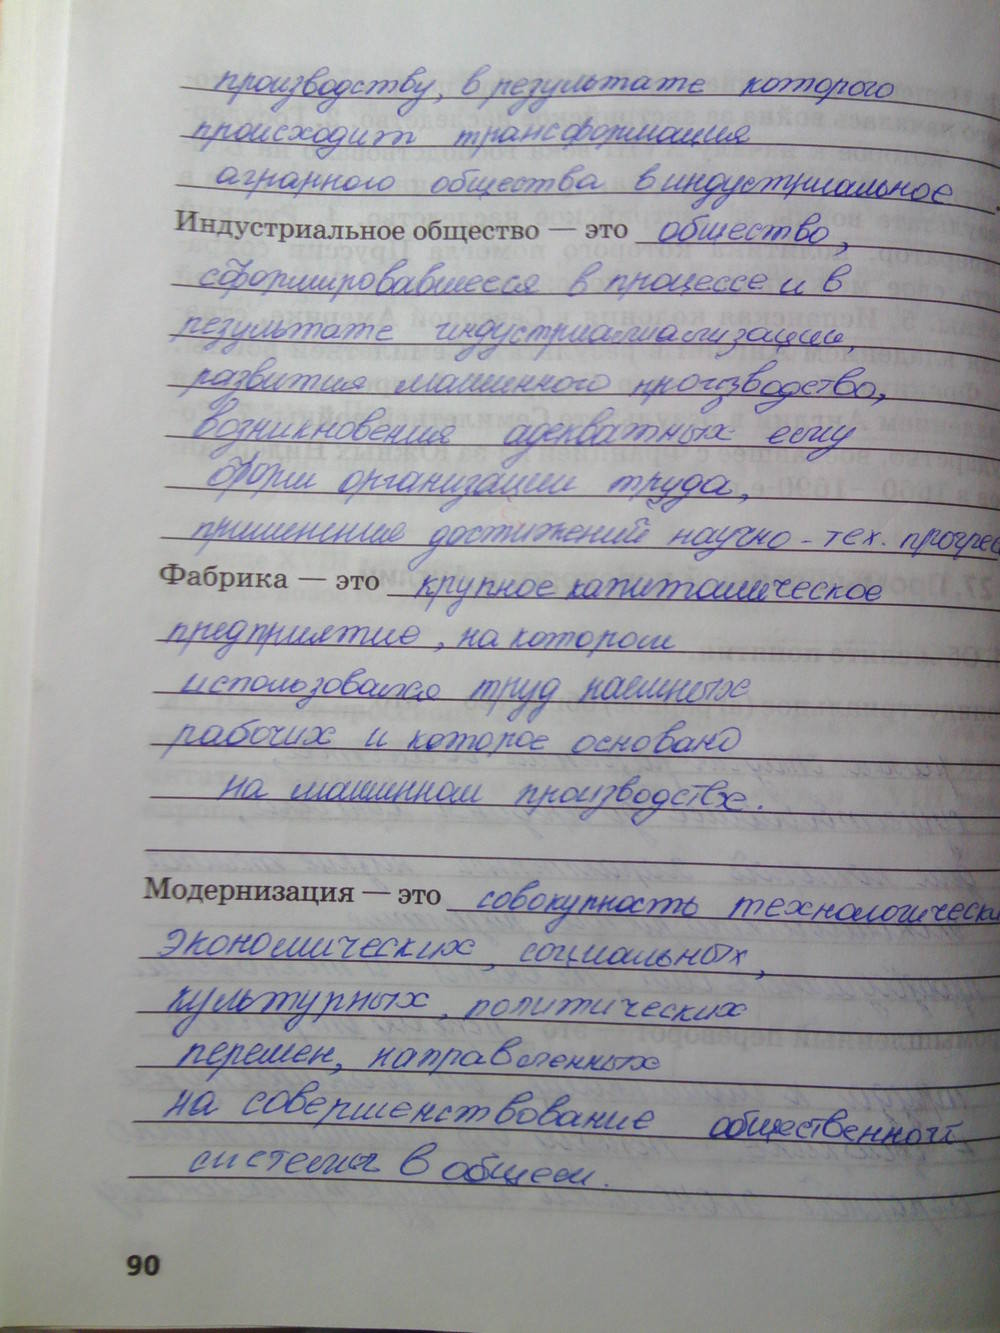 производству, в результате которого
происходит трансформация
аграрного общества в индустриальное.
Индустриальное общество — это общество,
сформировавшееся в процессе и в
результате индустриализации,
развития машинного производство,
возникновения адекватных ему
форм организации труда,
применение достижений научно-тех. прогрес
Фабрика — это крупное
предприятие, на котором
использовался труд наемных
рабочих и которое основано
на машинном производстве.
Модернизация — это совокупность технологически
экономических, социальных,
культурных, политических
перемен, направленных
на совершенствование общественной
системы в общем.
90